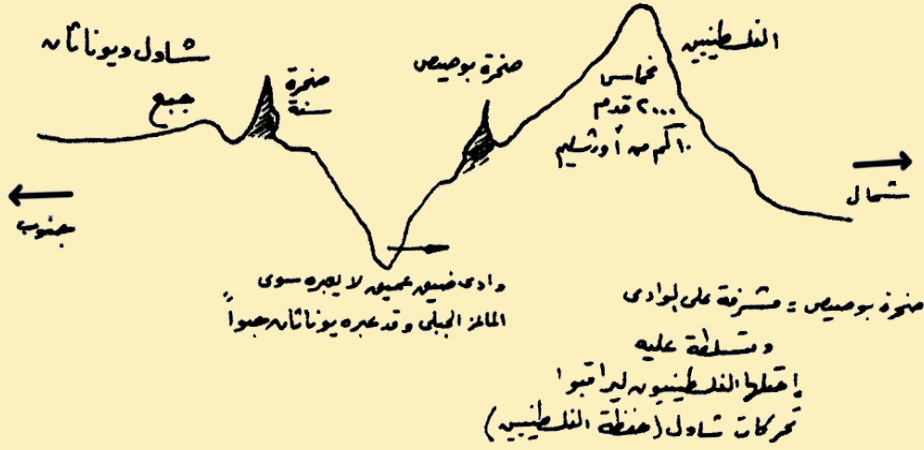 شاول ويوناثان
جبع
صخرة
سنة
صخرة بوصيص
الفلسطينيين
مخماس
٢٠٠٠ قدم
١٠كم من أورشليم
جنوب
شمال
وادى ضيق عميق لا يعبره سوى
الماعز الجبلى وقد عبره يوناثان حبواً
صخرة بوصيص = مشرفة على الوادى
ومتسلطة عليه
إحتلها الفلسطينيون ليراقبوا
تحركات شاول (حفظة الفلسطينيين)